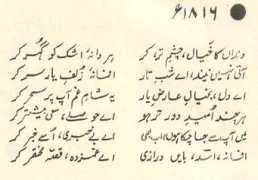 ۱۸۱۶ء
دنداں کا خیال، چشمِ تر، کر ہر دانۂ اشک کو گہر کر
آتی نہیں نیند، اے شبِ تار افسانۂ زلفِ یار سر کر
اے دل، بخیالِ عارضِ یار یہ شامِ غم آپ پر سحر کر
ہر چند امیدِ دور تر ہو اے حوصلے، سعیِ بیشتر کر
میں آپ سے جا چکا ہوں اب بھی اے بے خبری، اسے خبر کر
افسانہ، اسد، بایں درازی اے غمزدہ، قصہ مختصر کر